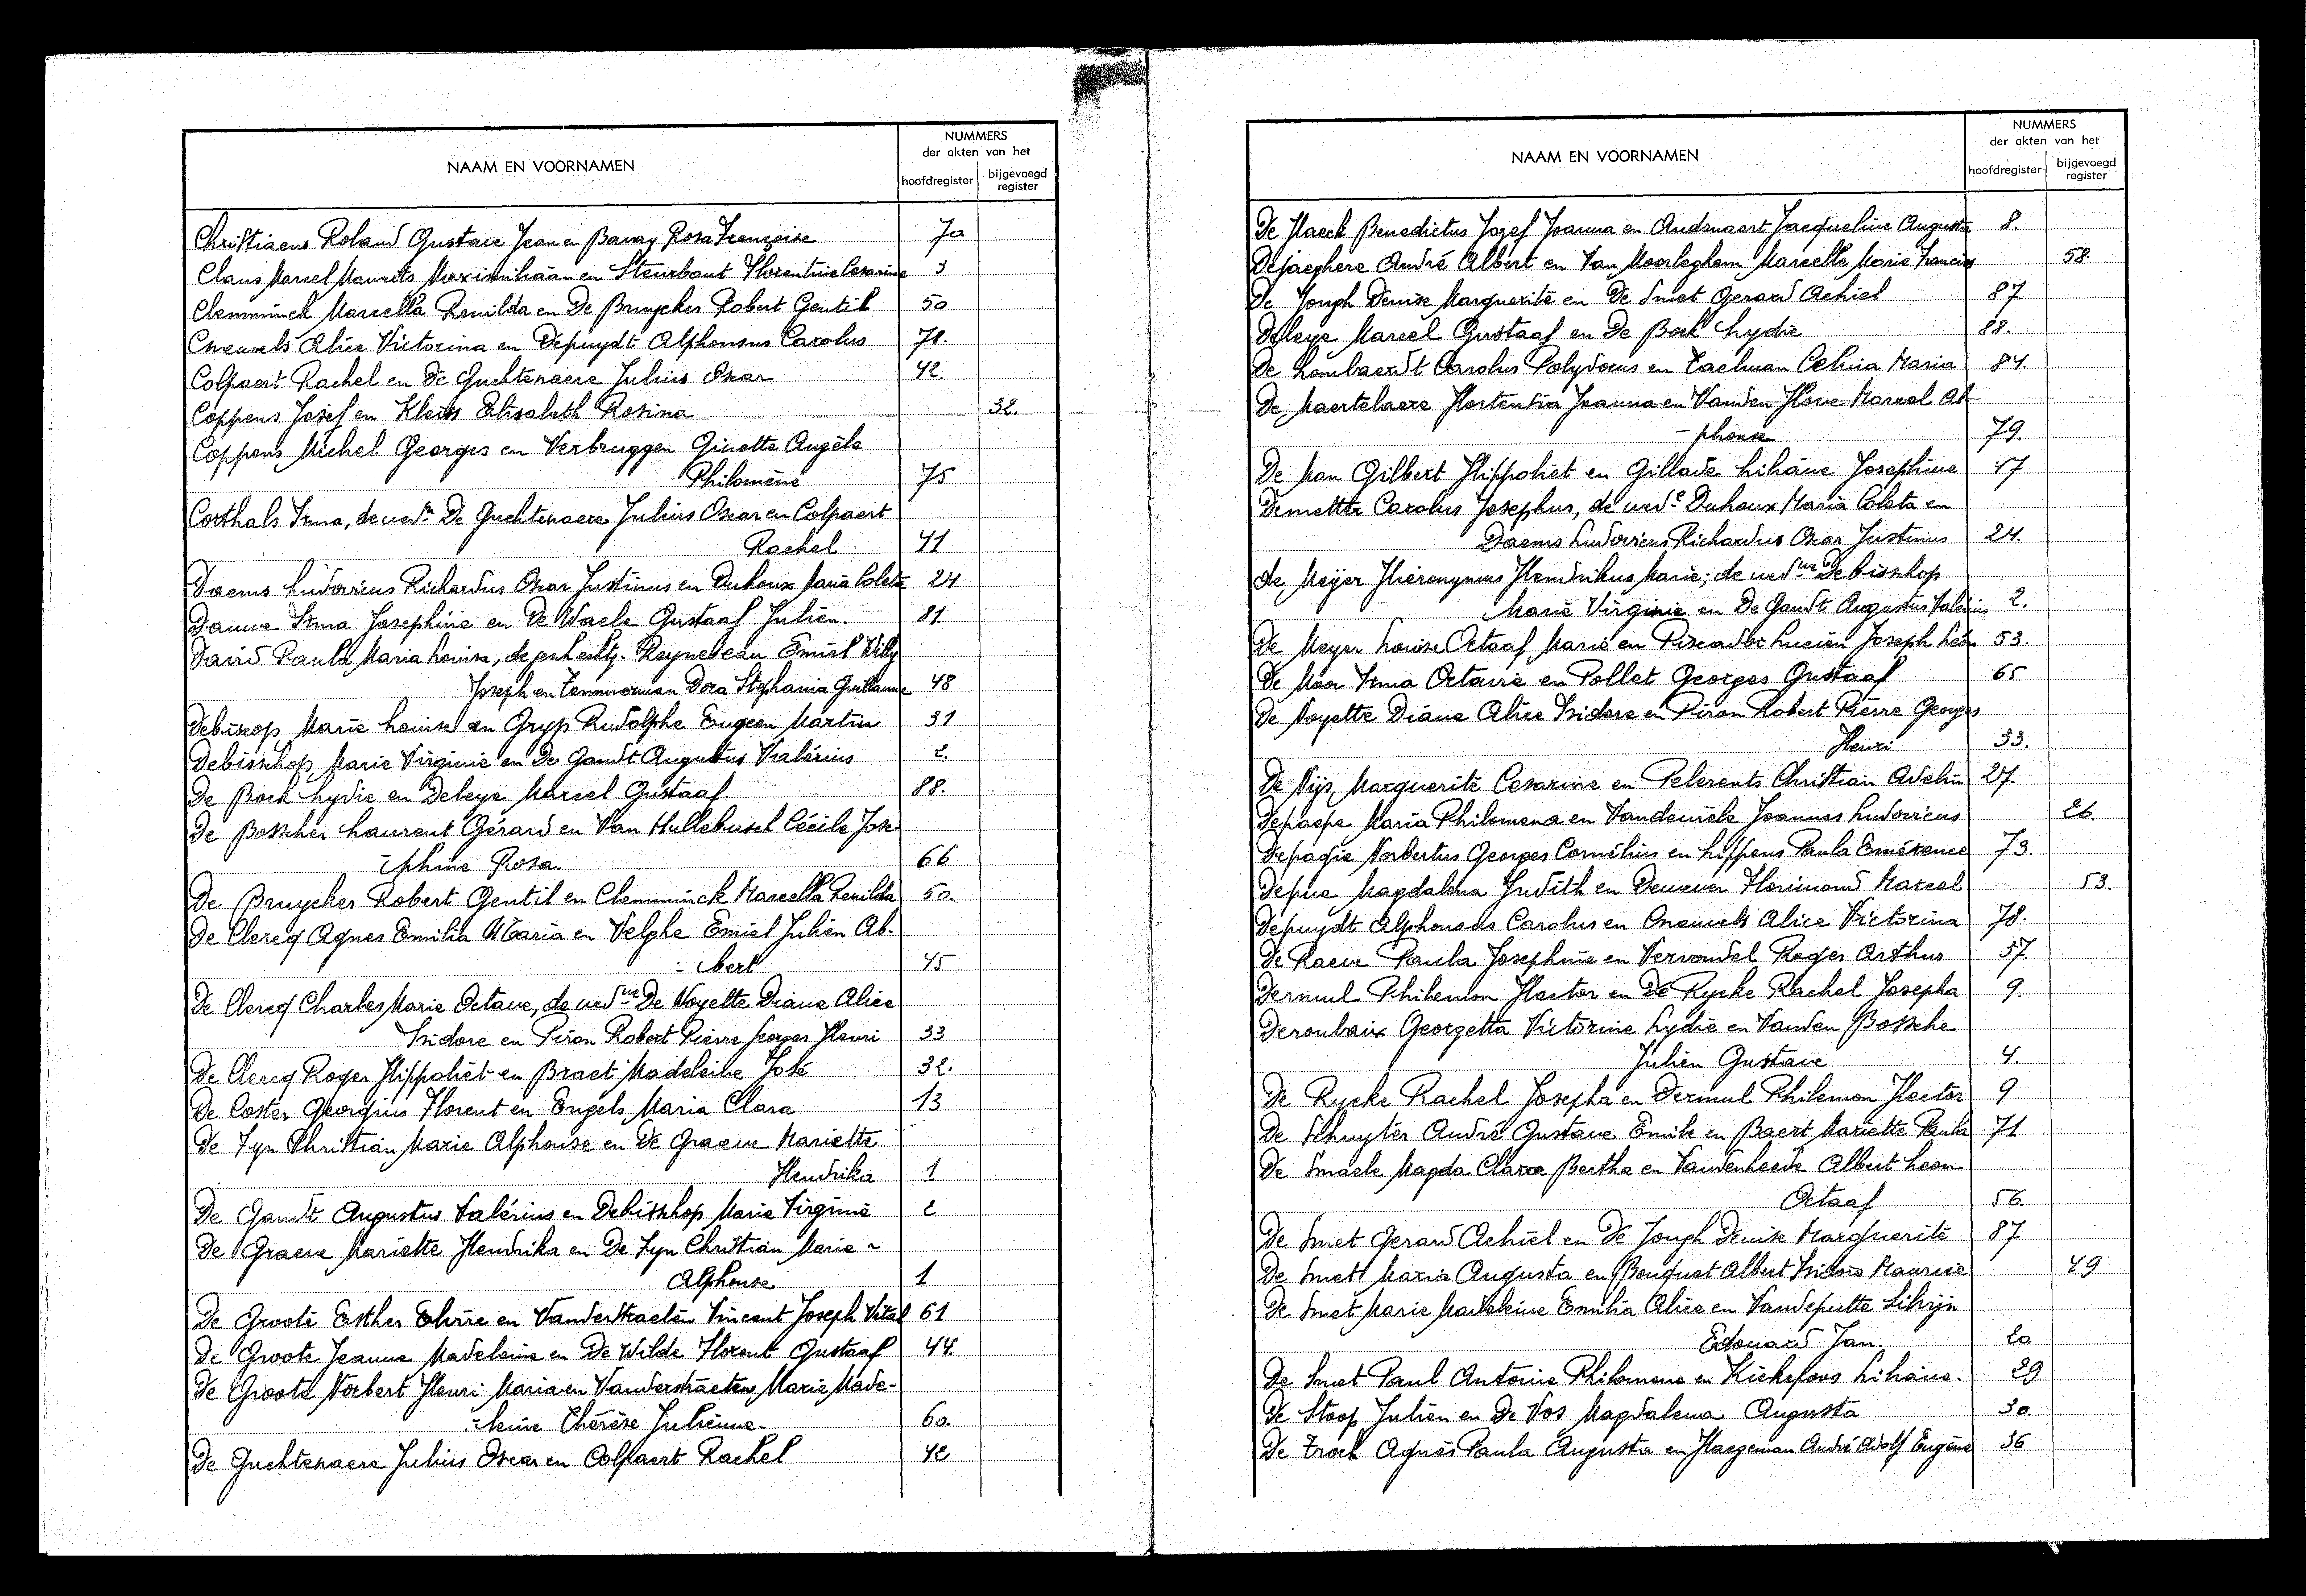 NAAM EN VOORNAMEN
NUMMERS
der akten van het
hoofdregister
bijgevoegd
register
Christiaens Roland Gustave Jean en Bavay Rosa Françoise 70
Claus Marcel Maurits Maximiliaan en Steurbaut Florentine Cesarine 3
Clemminck Marcella Renilda en De Bruycker Robert Gentil 50
Cneuvels Alice Victorina en Depuydt Alphonsus Carolus 78.
Colpaert Rachel en De Guchtenaere Julius Oscar 42.
Coppens Jozef en Kleirs Elisabeth Rosina 32.
Coppens Michel Georges en Verbruggen Ginette Angèle
Philomène 75
Corthals Irma, de wed.n De Guchtenaere Julius Oscar en Colpaert
Rachel 41
Daems Ludovicus Richardus Oscar Justinus en Duhoux Maria Coleta 24
Dauwe Irma Josephine en De Waele Gustaaf Julien. 81.
David Paula Maria Louisa, de gesch echtg. Reynebeau Emiel Willy
Joseph en Temmerman Dora Stephania Guillaume 48
Debiscop Marie Louise en Gryp Rudolphe Eugeen Martin 31
Debisschop Marie Virginie en De Gandt Augustus Valérius 2.
De Bock Lydie en Deleye Marcel Gustaaf 88.
De Bosscher Laurent Gérard en Van Hullebusch Cécile Jose-
-phine Rosa. 66
De Bruycker Robert Gentil en Clemminck Marcella Renilda 50.
De Clercq Agnes Emilia Maria en Velghe Emiel Julien Al-
-bert 45
De Clercq Charles Marie Octave, de wed.we De Noyette Diana Alice
Isidore en Piron Robert Pierre Georges Henri 33
De Clercq Roger Hippoliet en Braet Madeleine José 32.
De Coster Georgius Florent en Engels Maria Clara 13
De Fyn Christian Marie Alphonse en De Graeve Mariette
Hendrika 1
De Gandt Augustus Valérius en Debisschop Marie Virginie 2
De Graeve Mariette Hendrika en De Fyn Christian Marie -
Alphonse 1
De Groote Esther Elvire en Vanderstraeten Vincent Joseph Vital 61
De Groote Jeanne Madeleine en De Wilde Florent Gustaaf 44.
De Groote Norbert Henri Maria en Vanderstraeten Marie Made-
-leine Thérèse Julienne 60.
De Guchtenaere Julius Oscar en Colpaert Rachel 42
NAAM EN VOORNAMEN
NUMMERS
der akten van het
hoofdregister
bijgevoegd
register
De Haeck Benedictus Jozef Joanna en Audenaert Jacqueline Augusta 8.
Dejaeghere André Albert en Van Moorleghem Marcelle Marie Francine 58.
De Jongh Denise Marguerite en De Smet Gerard Achiel 87
Deleye Marcel Gustaaf en De Bock Lydie 88.
De Lombaerdt Carolus Polydorus en Taelman Celina Maria 84.
De Maertelaere Hortentia Joanna en Vanden Hove Marcel Al
-phonse 79.
De Man Gilbert Hippoliet en Gillade Liliane Josephine 47
Demetter Carolus Josephus, de wed.e Duhoux Maria Coleta en
Daems Ludovicus Richardus Oscar Justinus 24.
de Meijer Hiëronymus Hendrikus Marie, de wed.we Debisschop
Marie Virginie en De Gandt Augustus Valérius 2.
De Meyer Louise Octaaf Marie en Piscador Lucien Joseph Léon 53.
De Moor Irma Octavie en Pollet Georges Gustaaf 65
De Noyette Diane Alice Isidore en Piron Robert Pierre Georges
Henri 33.
De Nijs Marguerite Cesarine en Pelerents Christian Adelin 27.
Depaepe Maria Philomena en Vandewiele Joannes Ludovicus 26.
Depagie Norbertus Georges Cornélius en Lippens Paula Emérence 73.
Depue Magdalena Judith en Dewever Florimond Marcel 53.
Depuydt Alphonsus Carolus en Cneuvels Alice Victorina 78.
De Raeve Paula Josephine en Vervondel Roger Arthur 57
Dermul Philemon Hector en De Rycke Rachel Josepha 9.
Deroubaix Georgetta Victorine Lydie en Vanden Bossche
Julien Gustave 4.
De Rycke Rachel Josepha en Dermul Philemon Hector 9
De Schuyter André Gustave Emile en Baert Mariette Paula 71
De Smaele Magda Clara Bertha en Vandenheede Albert Leon
Octaaf 56.
De Smet Gerard Achiel en De Jongh Denise Marguerite 87
De Smet Maria Augusta en Bouquet Albert Isidore Maurice 49
De Smet Marie Madeleine Emilia Alice en Vandeputte Silvijn
Edouard Jan. 20
De Smet Paul Antoine Philomene en Kiekepoos Liliane. 29
De Stoop Julien en De Vos Magdalena Augusta 30.
De Troch Agnès Paula Augusta en Haegeman André Adolf Eugène 36